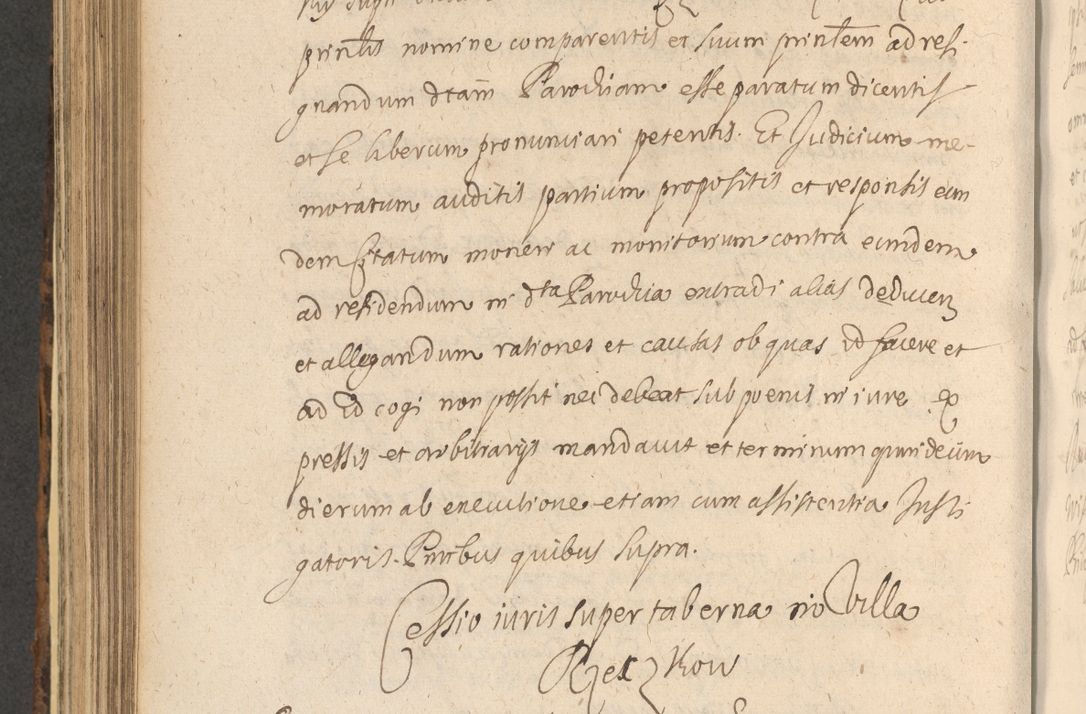 prin̄tis nomine comparentis et suum prin̄tem ad resi-
gnandum dtam̄ Parochiam esse paratum dicentis
et se liberum pronunciari petentis. Et Judicium me-
moratum auditis partium propositis et responsis eun
dem Citatum moneri ac monitorium contra eundem
ad residendum in dta Parochia extradi alias deducen
et allegandum rationes et causas ob quas id facere et
ad id cogi non possit nec debeat sub poenis in iure ex
pressis et arbitrarijs mandavit et terminum quindecim
dierum ab executione etiam cum assistentia Insti
gatoris. Pntibus quibus supra.
Cessio iuris super taberna in Villa
Rzeczkow